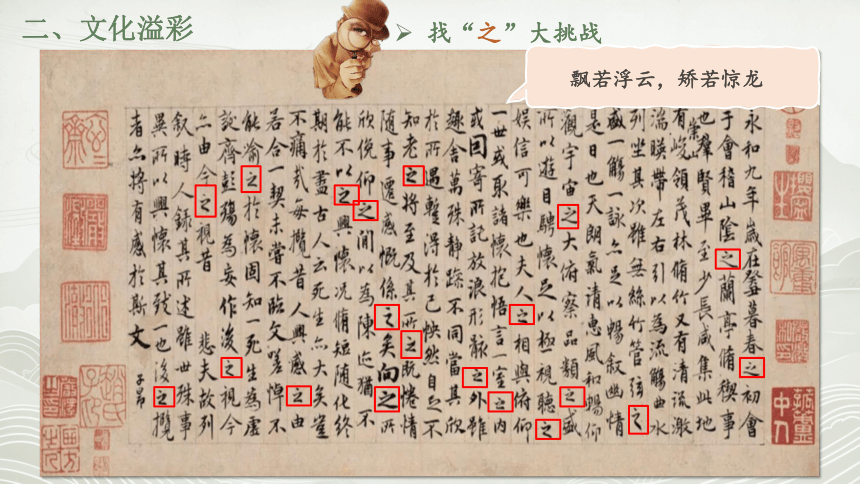 二、文化溢彩
➢ 找“之”大挑战
飘若浮云，矫若惊龙
永和九年歲在癸丑暮春之初會
于會稽山陰之蘭亭脩稧事
也羣賢畢至少長咸集此地
有崇山峻領茂林脩竹又有清流激
湍暎帶左右引以為流觴曲水
列坐其次雖無絲竹管弦之
盛一觴一詠亦足以暢敘幽情
是日也天朗氣清惠風和暢仰
觀宇宙之大俯察品類之盛
所以遊目騁懷足以極視聽之
娛信可樂也夫人之相與俯仰
一世或取諸懷抱悟言一室之內
或因寄所託放浪形骸之外雖
趣舍萬殊靜躁不同當其欣
於所遇暫得於己怏然自足不
知老之將至及其所之既惓情
隨事遷感慨係之矣向之所
欣俛仰之閒以為陳迹猶不
能不以之興懷況脩短隨化終
期於盡古人云死生亦大矣豈
不痛哉每攬昔人興感之由
若合一契未嘗不臨文嗟悼不
能喻之於懷固知一死生為虛
誕齊彭殤為妄作後之視今
亦由今之視昔 悲夫故列
敘時人錄其所述雖世殊事
異所以興懷其致一也後之攬
者亦將有感於斯文
子昂